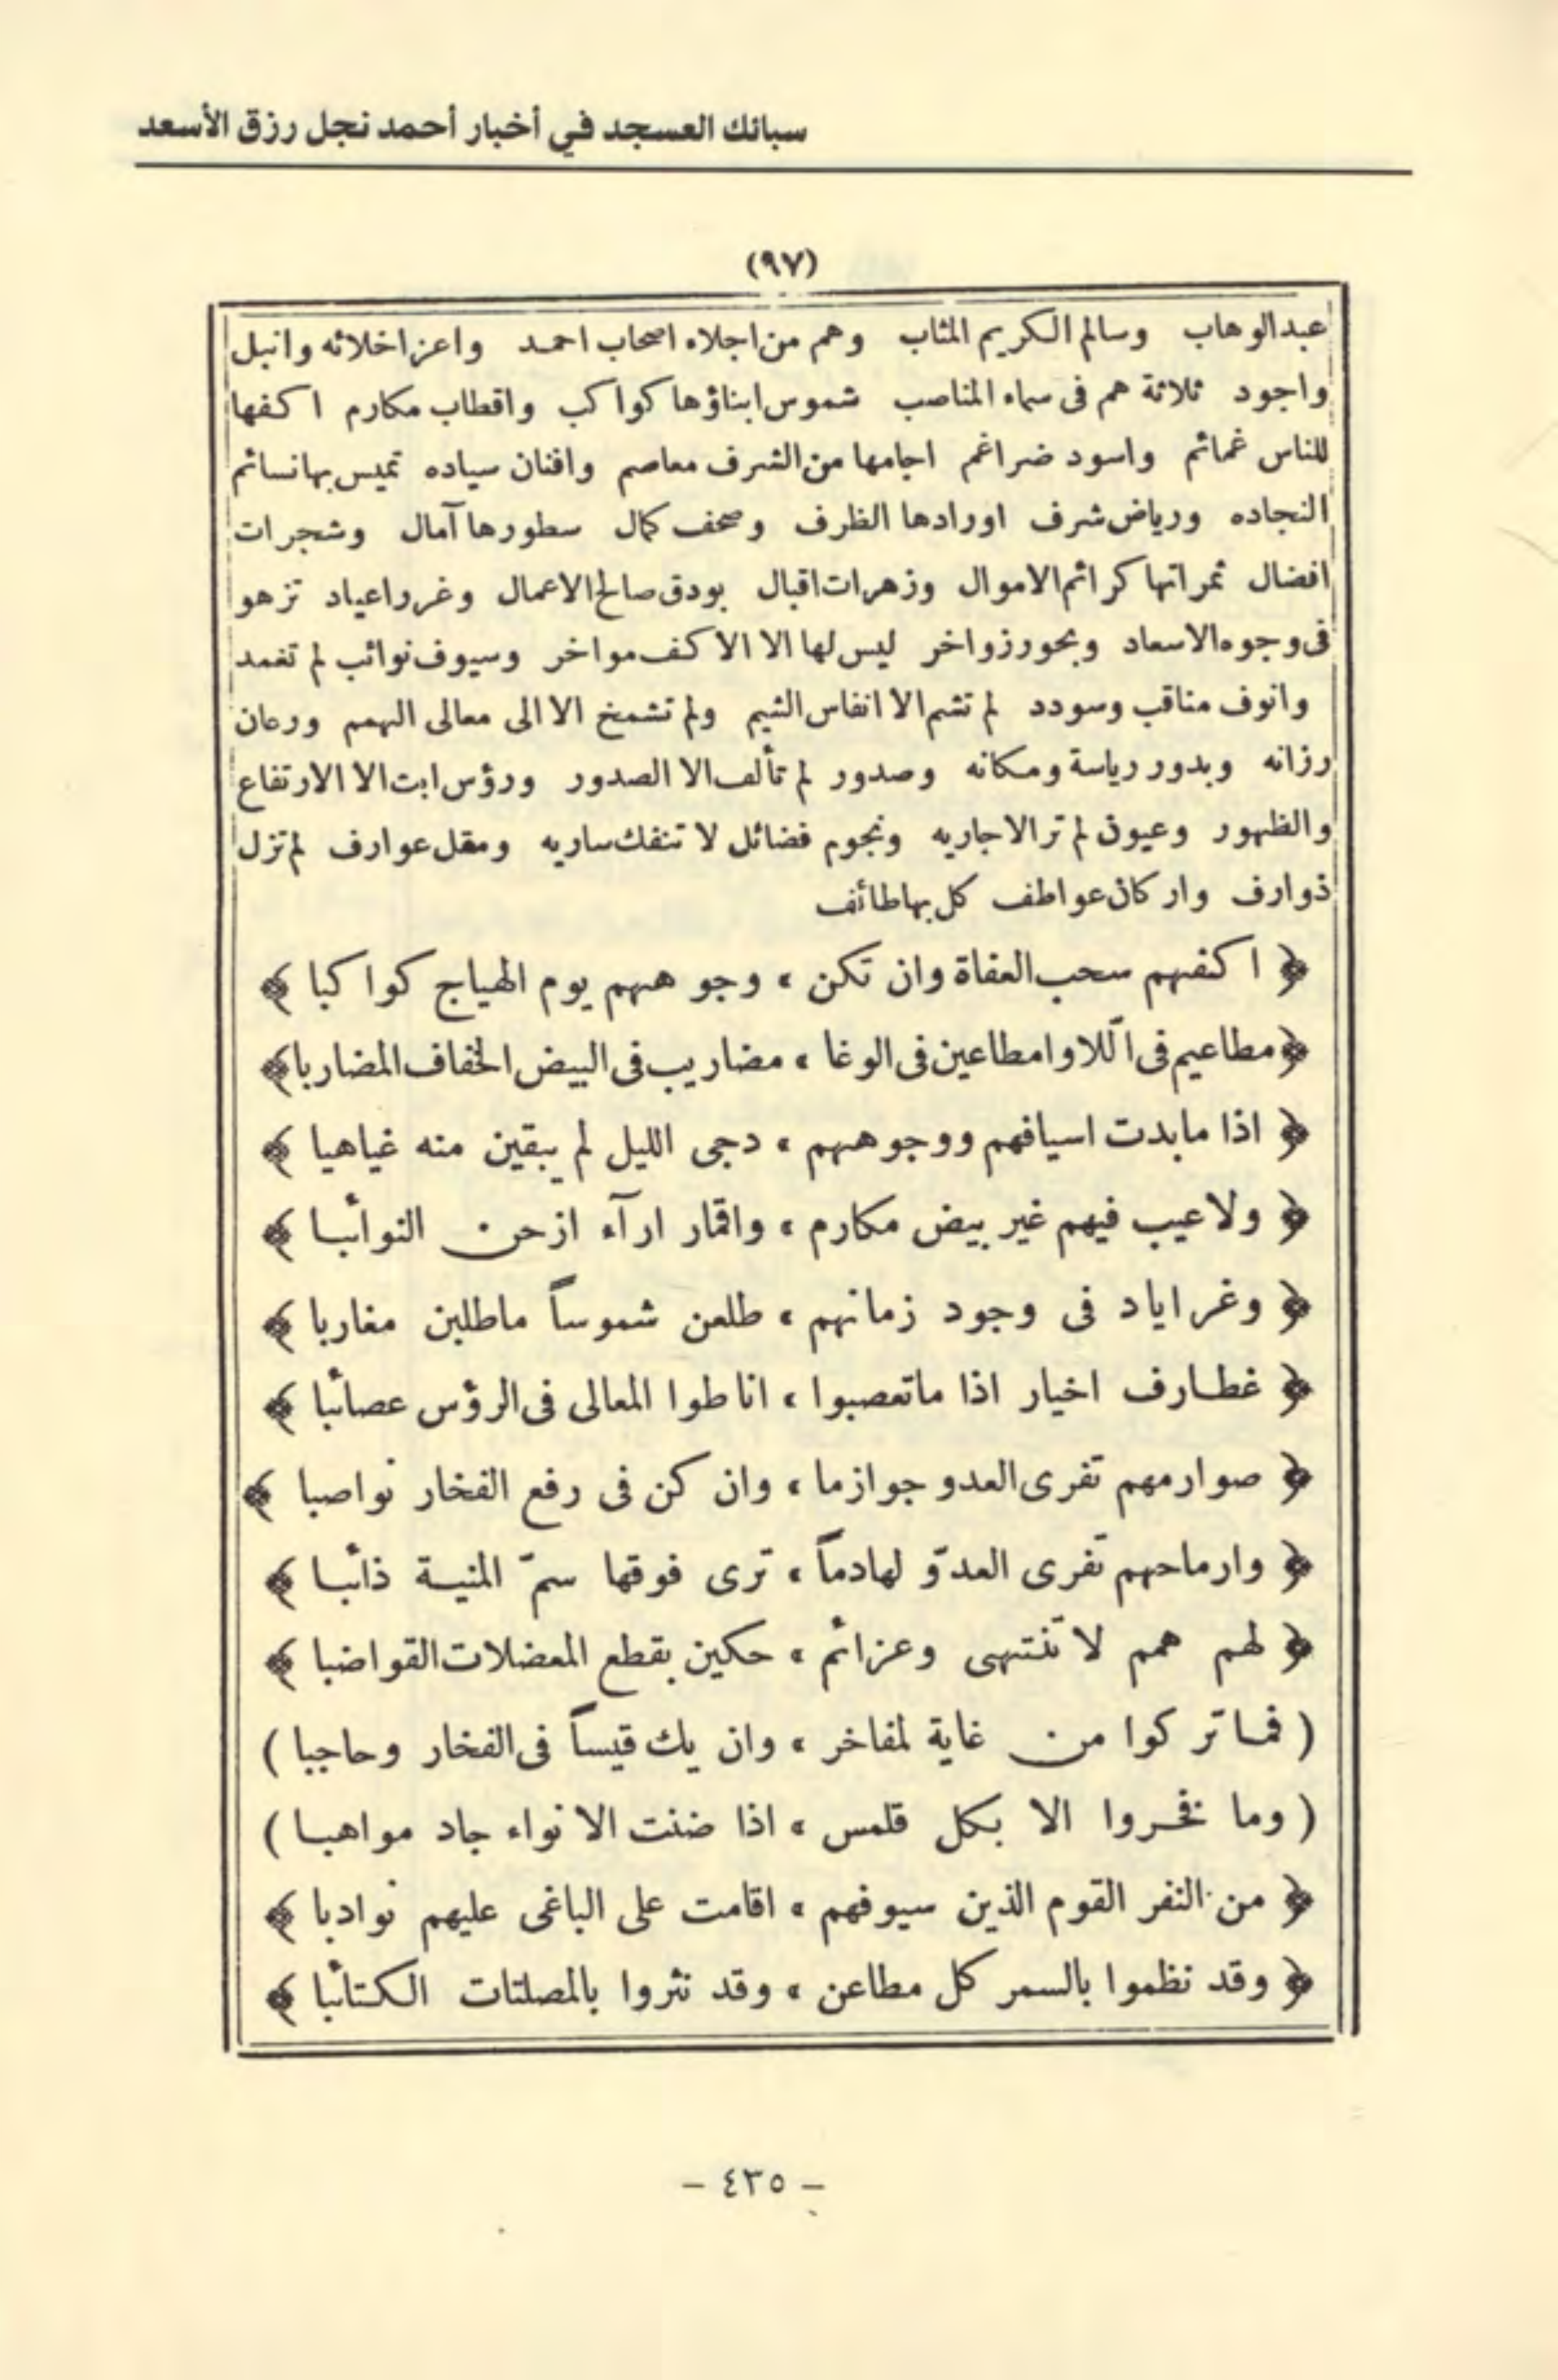 سبائك العسجد في أخبار أحمد نجل رزق الأسعد
(٩٧)
عبدالوهاب وسالم الكريم المثاب وهم من اجلاء اصحاب احمد واعز اخلائه وانبل
واجود ثلاثة هم فى سماء المناصب شموس ابناؤها كواكب واقطاب مكارم اكفها
للناس غمائم واسود ضراغم اجامها من الشرف معاصم وافنان سياده تميس بها نسائم
النجاده ورياض شرف اورادها الظرف وصحف كمال سطورها آمال وشجرات
افضال ثمراتها كرائم الاموال وزهرات اقبال بودق صالح الاعمال وغرر اعياد تزهو
فى وجوه الاسعاد وبحور زواخر ليس لها الا الاكف مواخر وسيوف نوائب لم تغمد
وانوف مناقب وسودد لم تشم الا انفاس الشيم ولم تشمخ الا الى معالى الهمم ورعان
رزانه وبدور رياسة ومكانه وصدور لم تألف الا الصدور ورؤس ابت الا الارتفاع
والظهور وعيون لم تر الا جاريه ونجوم فضائل لا تنفك ساريه ومقل عوارف لم تزل
ذوارف واركان عواطف كل بها طائف
﴿ اكفهم سحب العفاة وان تكن ، وجوههم يوم الهياج كواكبا ﴾
﴿ مطاعيم فى اللاوا مطاعين فى الوغا ، مضاريب فى البيض الخفاف المضاربا ﴾
﴿ اذا ما بدت اسيافهم ووجوههم ، دجى الليل لم يبقين منه غياهبا ﴾
﴿ ولا عيب فيهم غير بيض مكارم ، واقمار ارآء ازحن النوائبا ﴾
﴿ وغر اياد فى وجود زمانهم ، طلعن شموساً ما طلبن مغاربا ﴾
﴿ غطارف اخيار اذا ما تعصبوا ، اناطوا المعالى فى الرؤس عصائبا ﴾
﴿ صوارمهم تفرى العدو جوازما ، وان كن فى رفع الفخار نواصبا ﴾
﴿ وارماحهم تفرى العدوّ لهادماً ، ترى فوقها سمّ المنية ذائبا ﴾
﴿ لهم همم لا تنتهى وعزائم ، حكين بقطع المعضلات القواضبا ﴾
( فما تركوا من غاية لمفاخر ، وان يك قيساً فى الفخار وحاجبا )
( وما فخروا الا بكل قلمس ، اذا ضنت الانواء جاد مواهبا )
﴿ من النفر القوم الذين سيوفهم ، اقامت على الباغى عليهم نوادبا ﴾
﴿ وقد نظموا بالسمر كل مطاعن ، وقد نثروا بالمصلتات الكتائبا ﴾
- ٤٣٥ -